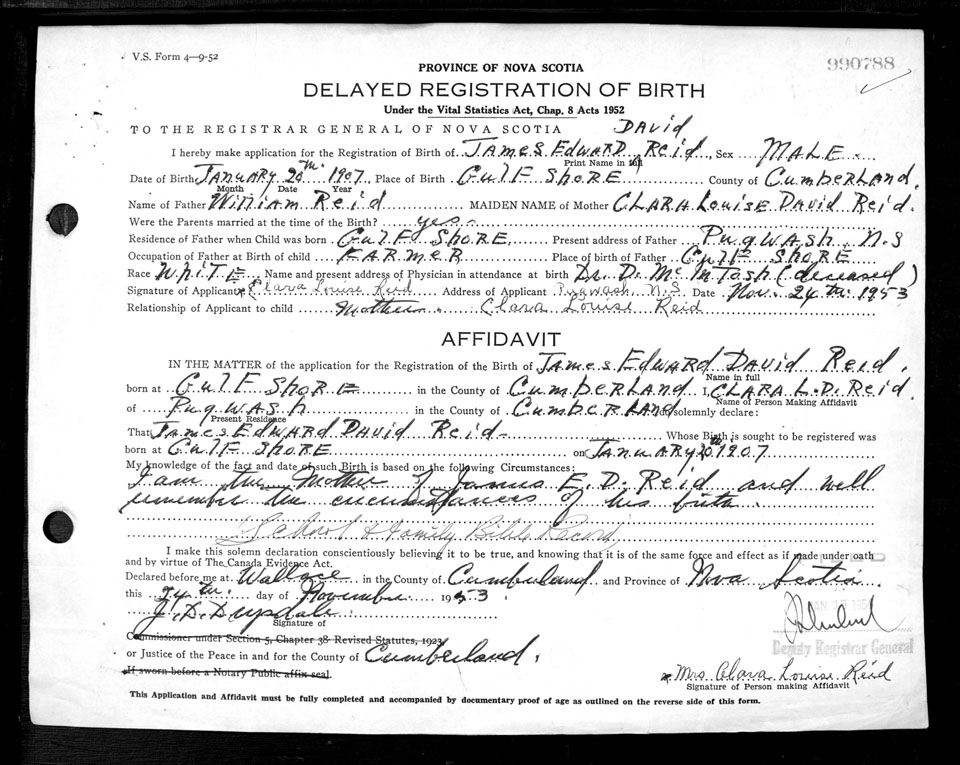 V.S. Form 4—9-52
990788
PROVINCE OF NOVA SCOTIA
DELAYED REGISTRATION OF BIRTH
Under the Vital Statistics Act, Chap. 8 Acts 1952
TO THE REGISTRAR GENERAL OF NOVA SCOTIA
David
I hereby make application for the Registration of Birth of James Edward Reid, Sex MALE.
Print Name in full
Date of Birth January 20th 1907, Place of Birth Gulf Shore County of Cumberland.
Month Date Year
Name of Father William Reid MAIDEN NAME of Mother Clara Louise David Reid.
Were the Parents married at the time of the Birth? yes.
Residence of Father when Child was born Gulf Shore, Present address of Father Pugwash N.S
Occupation of Father at Birth of child FARMER Place of birth of Father Gulf Shore
Race White Name and present address of Physician in attendance at birth Dr. D. McIntosh (deseased)
Signature of Applicant x Clara Louise Reid Address of Applicant Pugwash N.S. Date Nov. 24th 1953
Relationship of Applicant to child Mother. Clara Louise Reid
AFFIDAVIT
IN THE MATTER of the application for the Registration of the Birth of James Edward David Reid.
Name in full
born at Gulf Shore in the County of Cumberland I, CLARA L.D. Reid
Name of Person Making Affidavit
of Pugwash in the County of Cumberland solemnly declare:
Present Residence
That James Edward David Reid Whose Birth is sought to be registered was
born at Gulf Shore on January 20th 1907
My knowledge of the fact and date of such Birth is based on the following Circumstances:
I am the Mother of James E. D. Reid and well
remember the circumstances of his birth.
School & Family Bible Record
I make this solemn declaration conscientiously believing it to be true, and knowing that it is of the same force and effect as if made under oath
and by virtue of The Canada Evidence Act.
Declared before me at Wallace in the County of Cumberland and Province of Nova Scotia
this 24th day of November 1953.
J. D. Drysdale
Signature of
Commissioner under Section 5, Chapter 38 Revised Statutes, 1923
or Justice of the Peace in and for the County of Cumberland.
If sworn before a Notary Public affix seal.
Deputy Registrar General
x Mrs Clara Louise Reid
Signature of Person making Affidavit
This Application and Affidavit must be fully completed and accompanied by documentary proof of age as outlined on the reverse side of this form.